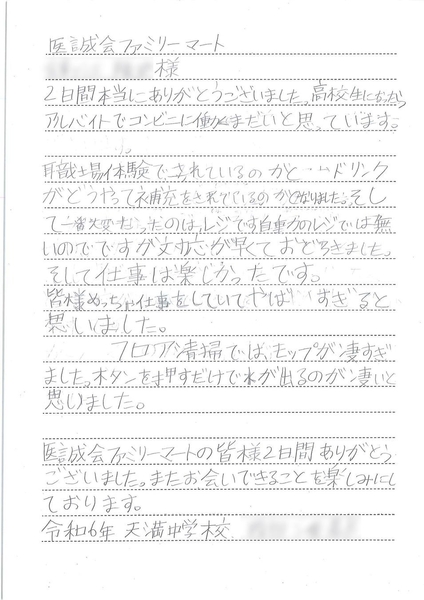 医誠会ファミリーマート
様
2日間本当にありがとうございました。高校生になったら
アルバイトでコンビニに働きたいと思っています。
職場体験でされているのかと…ドリンク
がどうやって補充をされているのかとなりました。そし
て一番大変だったのは、レジです自動のレジでは無
いのでですが対応が早くておどろきました。
そして仕事は楽しかったです。
皆様めっちゃ仕事をしていてやばいすぎると
思いました。
フロア清掃では、モップが凄すぎ
ました。ボタンを押すだけで水が出るのが凄いと
思いました。
医誠会ファミリーマートの皆様2日間ありがとう
ございました。またお会いできることを楽しみにし
ております。
令和6年 天満中学校